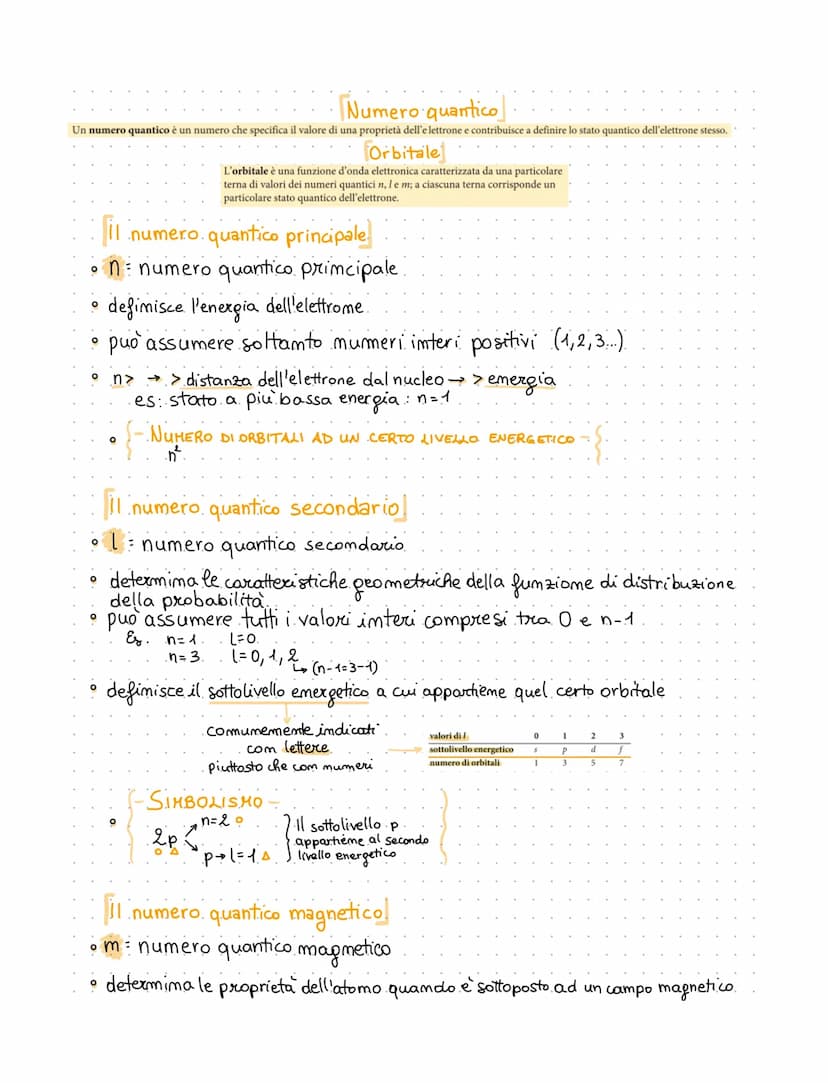 Numero quantico
Un numero quantico è un numero che specifica il valore di una proprietà dell'elettrone e contribuisce a definire lo stato quantico dell'elettrone stesso.
Orbitale
L'orbitale è una funzione d'onda elettronica caratterizzata da una particolare
terna di valori dei numeri quantici n, l e m; a ciascuna terna corrisponde un
particolare stato quantico dell'elettrone.
Il numero quantico principale
n = numero quantico principale
definisce l'energia dell'elettrone
può assumere soltanto numeri interi positivi (1,2,3...)
n> → > distanza dell'elettrone dal nucleo → > energia
es: stato a più bassa energia: n=1
- NUMERO DI ORBITALI AD UN CERTO LIVELLO ENERGETICO -
n²
Il numero quantico secondario
l = numero quantico secondario
determina le caratteristiche geometriche della funzione di distribuzione
della probabilità
può assumere tutti i valori interi compresi tra 0 e n-1
Es. n=1 l=0
n=3 l=0, 1, 2
↳ (n-1=3-1)
definisce il sottolivello energetico a cui appartiene quel certo orbitale
comunemente indicati
con lettere
piuttosto che con numeri
valori di l 0 1 2 3
sottolivello energetico s p d f
numero di orbitali 1 3 5 7
- SIMBOLISMO -
2p
n=2
p→l=1
Il sottolivello p
appartiene al secondo
livello energetico
Il numero quantico magnetico
m = numero quantico magnetico
determina le proprietà dell'atomo quando è sottoposto ad un campo magnetico